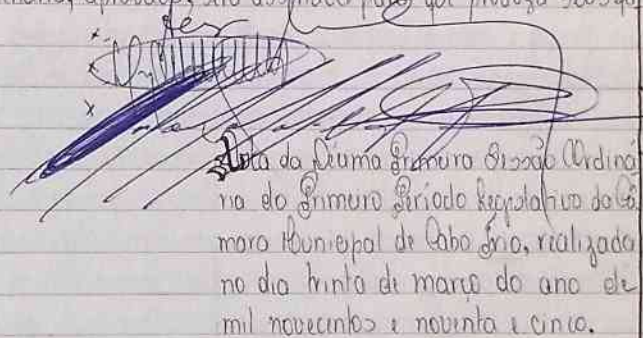 aprovada, assinada para que produza seus
Ata da Décima Primeira Sessão Ordiná
ria do Primeiro Período Legislativo da Câ
mara Municipal de Cabo Frio, realizada
no dia trinta de março do ano de
mil novecentos e noventa e cinco.